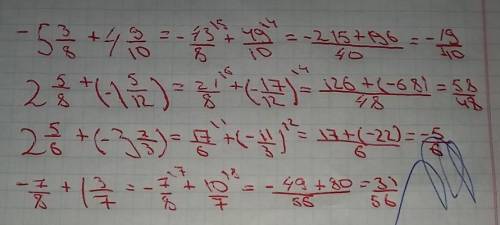 -5 3/8 + 4 9/10 = -43/8 ^5 + 49/10 ^4 = -215+196/40 = -19/40
2 5/8 + (-1 5/12) = 21/8 ^6 + (-17/12) ^4 = 126+(-68)/48 = 58/48
2 5/6 + (-3 2/3) = 17/6 ^1 + (-11/3) ^2 = 17+(-22)/6 = -5/6
-7/8 + 1 3/7 = -7/8 ^7 + 10/7 ^8 = -49+80/56 = 31/56